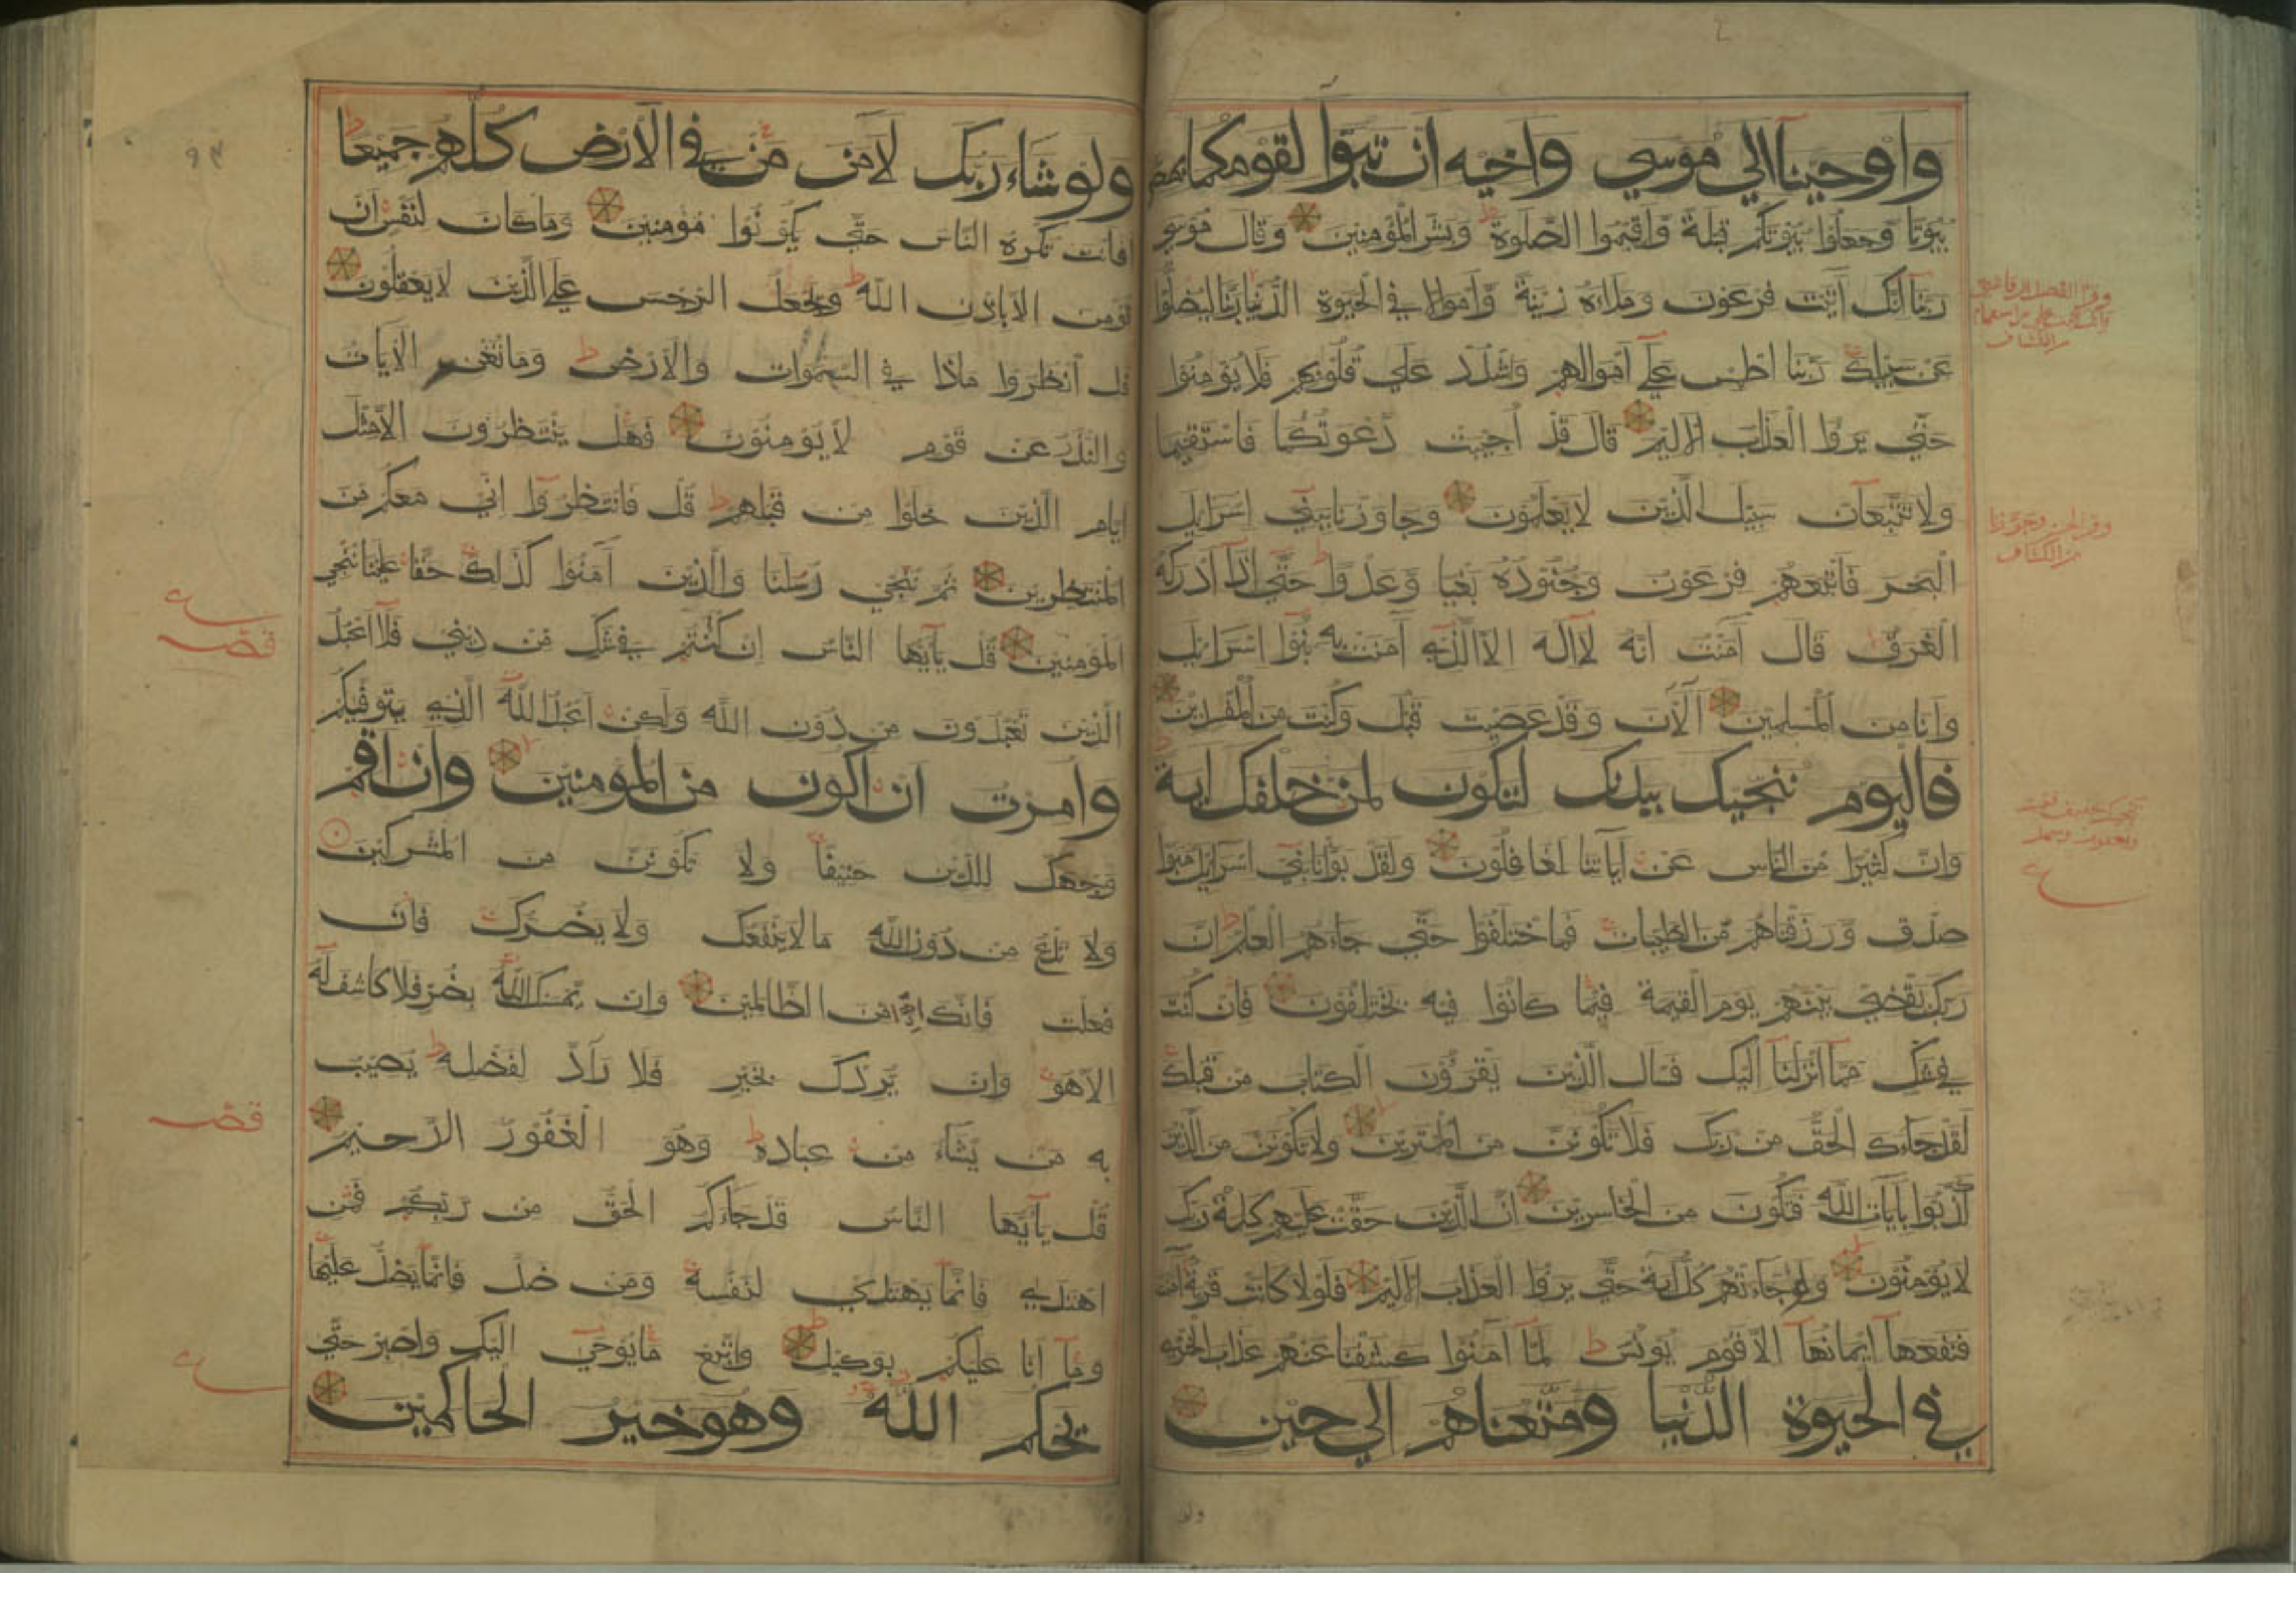 واوحينا الي موسي واخيه ان تبوا لقومكما بمصر
بيوتا وجعلوا بيوتكم قبلة واقيموا الصلوة وبشر المؤمنين وقال موسي
ربنا انك آتيت فرعون وملاءه زينة واموالا في الحيوة الدنيا ربنا ليضلوا
عن سبيلك ربنا اطمس علي اموالهم واشدد علي قلوبهم فلا يؤمنوا
حتي يروا العذاب الاليم قال قد اجيبت دعوتكما فاستقيما
ولا تتبعان سبيل الذين لا يعلمون وجاوزنا ببني اسرايل
البحر فاتبعهم فرعون وجنوده بغيا وعدوا حتي اذا ادركه
الغرق قال آمنت انه لا اله الا الذي آمنت به بنوا اسرايل
وانا من المسلمين آلآن وقد عصيت قبل وكنت من المفسدين
فاليوم ننجيك ببدنك لتكون لمن خلفك اية
وان كثيرا من الناس عن اياتنا لغافلون ولقد بوانا بني اسرايل مبوا
صدق ورزقناهم من الطيبات فما اختلفوا حتي جاءهم العلم ان
ربك يقضي بينهم يوم القيمة فيما كانوا فيه يختلفون فان كنت
في شك مما انزلنا اليك فسال الذين يقرؤن الكتاب من قبلك
لقد جاءك الحق من ربك فلا تكونن من الممترين ولا تكونن من الذين
كذبوا بايات الله فتكون من الخاسرين ان الذين حقت عليهم كلمة ربك
لا يؤمنون ولو جاءتهم كل اية حتي يروا العذاب الاليم فلولا كانت قرية آمنت
فنفعها ايمانها الا قوم يونس لما آمنوا كشفنا عنهم عذاب الخزي
في الحيوة الدنيا ومتعناهم الي حين
ولو
ولو شاء ربك لامن من في الارض كلهم جميعا
افانت تكره الناس حتي يكونوا مؤمنين وما كان لنفس ان
تؤمن الا باذن الله ويجعل الرجس علي الذين لا يعقلون
قل انظروا ماذا في السموات والارض وما تغني الآيات
والنذر عن قوم لا يؤمنون فهل ينتظرون الا مثل
ايام الذين خلوا من قبلهم قل فانتظروا اني معكم من
المنتظرين ثم ننجي رسلنا والذين آمنوا كذلك حقا علينا ننجي
المؤمنين قل يآيها الناس ان كنتم في شك من ديني فلا اعبد
الذين تعبدون من دون الله ولكن اعبد الله الذي يتوفيكم
وامرت ان اكون من المؤمنين وان اقم
وجهك للدين حنيفا ولا تكونن من المشركين
ولا تدع من دون الله ما لا ينفعك ولا يضرك فان
فعلت فانك اذا من الظالمين وان يمسسك الله بضر فلا كاشف له
الا هو وان يردك بخير فلا راد لفضله يصيب
به من يشاء من عباده وهو الغفور الرحيم
قل يآيها الناس قد جاءكم الحق من ربكم فمن
اهتدي فانما يهتدي لنفسه ومن ضل فانما يضل عليها
وما انا عليكم بوكيل واتبع ما يوحي اليك واصبر حتي
يحكم الله وهو خير الحاكمين